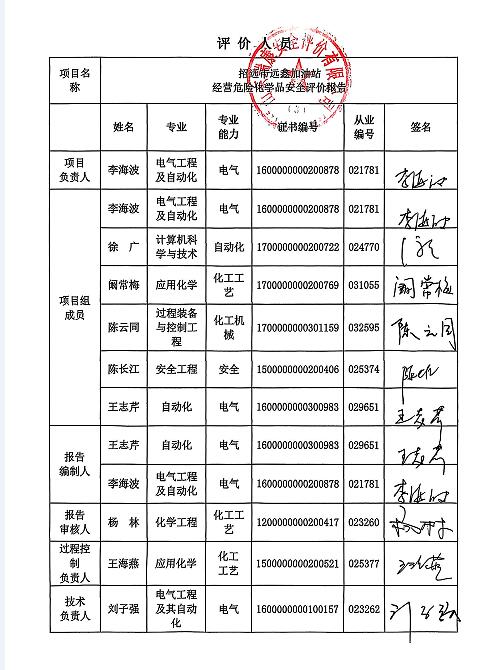 评 价 人 员
项目名称 招远市远鑫加油站
经营危险化学品安全评价报告
姓名 专业 专业能力 证书编号 从业编号 签名
项目负责人 李海波 电气工程及自动化 电气 1600000000200878 021781 李海波
项目组成员 李海波 电气工程及自动化 电气 1600000000200878 021781 李海波
徐 广 计算机科学与技术 自动化 1700000000200722 024770
阚常梅 应用化学 化工工艺 1700000000200769 031055 阚常梅
陈云同 过程装备与控制工程 化工机械 1700000000301159 032595 陈云同
陈长江 安全工程 安全 1500000000200406 025374
王志芹 自动化 电气 1600000000300983 029651 王志芹
报告编制人 王志芹 自动化 电气 1600000000300983 029651 王志芹
李海波 电气工程及自动化 电气 1600000000200878 021781 李海波
报告审核人 杨 林 化学工程 化工工艺 1200000000200417 023260 杨林
过程控制负责人 王海燕 应用化学 化工工艺 1500000000200521 025377 王海燕
技术负责人 刘子强 电气工程及其自动化 电气 1600000000100157 023262 刘子强